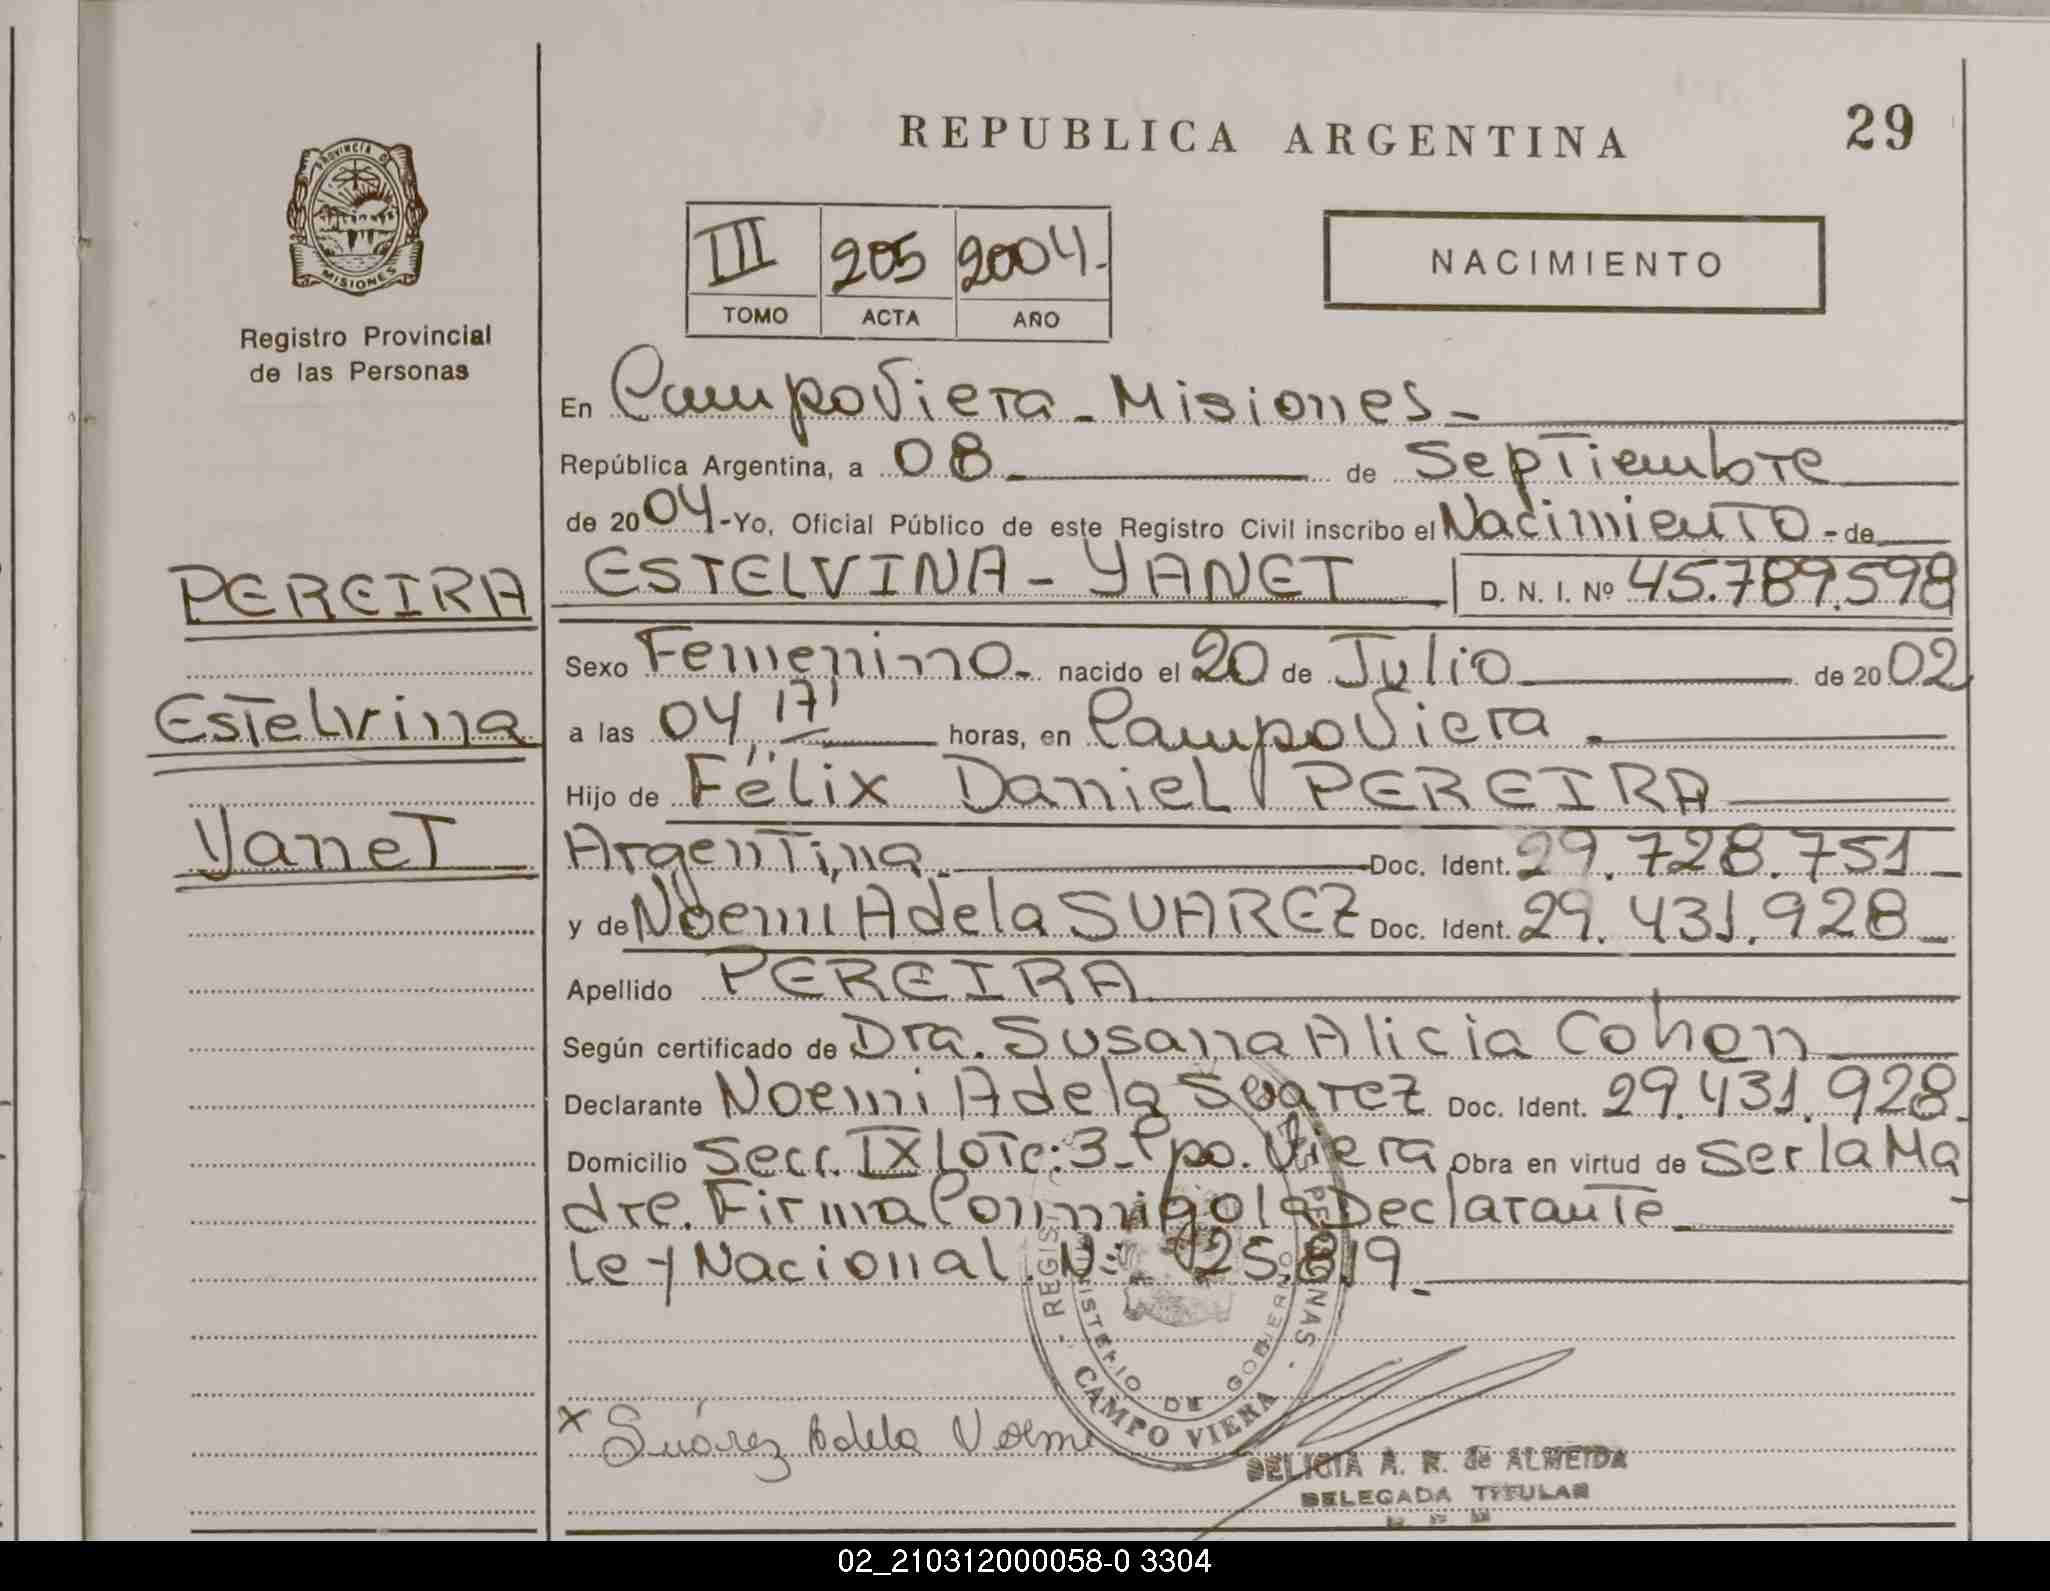 REPUBLICA ARGENTINA
29
PROVINCIA DE
MISIONES
Registro Provincial
de las Personas
III 205 2004.
TOMO ACTA AÑO
NACIMIENTO
En Campo Viera - Misiones -
República Argentina, a 08 de Septiembre
de 2004-Yo, Oficial Público de este Registro Civil inscribo el Nacimiento - de
PEREIRA
Estelvina
Yanet
ESTELVINA - YANET D. N. I. Nº 45.789.598
Sexo Femenino - nacido el 20 de Julio de 2002
a las 04,17' horas, en Campo Viera.
Hijo de Félix Daniel PEREIRA
Argentina. Doc. Ident. 29.728.751
y de Noemi Adela SUAREZ Doc. Ident. 29.431.928
Apellido PEREIRA
Según certificado de Dra. Susana Alicia Cohen
Declarante Noemi Adela Suarez Doc. Ident. 29.431.928.
Domicilio Secc. IX Lote: 3 - Cpo. Viera Obra en virtud de Ser la Ma
dre. Firma Conmigo la Declarante
ley Nacional. Nº 25.819.
MINISTERIO DE GOBIERNO
CAMPO VIERA
x Suárez Adela Noemi
DELICIA A. R. de ALMEIDA
DELEGADA TITULAR
02_210312000058-0 3304